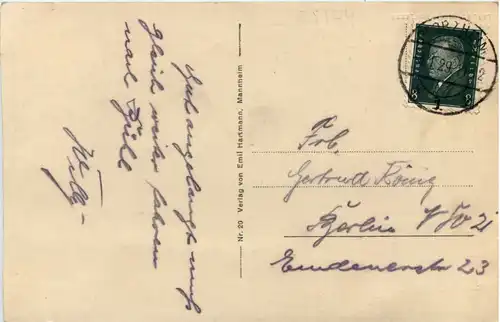 Gut angelangt muß
gleich weiter fahren
nach
Willy
Nr. 20 Verlag von Emil Hartmann, Mannheim
Gertrud König
Berlin NW 21
Emdenerstr 23
8
8